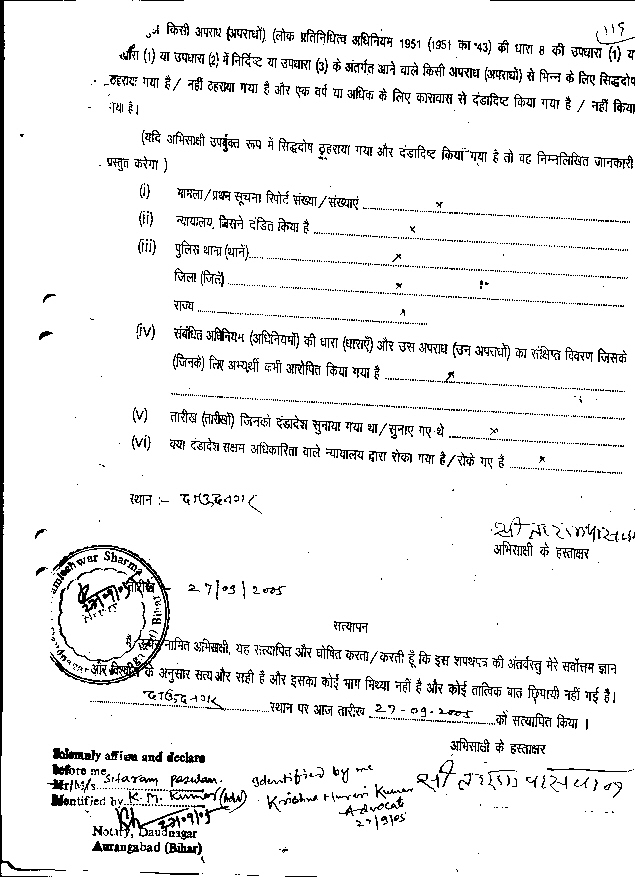 115
किसी अपराध (अपराधों) (लोक प्रतिनिधित्व अधिनियम 1951 (1951 का 43) की धारा 8 की उपधारा (1) य
धारा (1) या उपधारा (2) में निर्दिष्ट या उपधारा (3) के अंतर्गत आने वाले किसी अपराध (अपराधों) से भिन्न के लिए सिद्धदोष
ठहराया गया है / नहीं ठहराया गया है और एक वर्ष या अधिक के लिए कारावास से दंडादिष्ट किया गया है / नहीं किया
गया है।
(यदि अभिसाक्षी उपर्युक्त रूप में सिद्धदोष ठहराया गया और दंडादिष्ट किया गया है तो वह निम्नलिखित जानकारी
प्रस्तुत करेगा )
(i) मामला/प्रथम सूचना रिपोर्ट संख्या/संख्याएं x
(ii) न्यायालय, जिसने दंडित किया है x
(iii) पुलिस थाना (थाने) x
जिला (जिले) x
राज्य x
(iv) संबंधित अधिनियम (अधिनियमों) की धारा (धाराएँ) और उस अपराध (उन अपराधों) का संक्षिप्त विवरण जिसके
(जिनके) लिए अभ्यर्थी कभी आरोपित किया गया है x
(v) तारीख (तारीखें) जिनको दंडादेश सुनाया गया था/सुनाए गए थे x
(vi) क्या दंडादेश सक्षम अधिकारिता वाले न्यायालय द्वारा रोका गया है/रोके गए हैं x
स्थान :- दाउदनगर
अभिसाक्षी के हस्ताक्षर
Sharma
तारीख - 27/09/2005
सत्यापन
मैं, नामित अभिसाक्षी, यह सत्यापित और घोषित करता/करती हूँ कि इस शपथपत्र की अंतर्वस्तु मेरे सर्वोत्तम ज्ञान
और विश्वास के अनुसार सत्य और सही है और इसका कोई भाग मिथ्या नहीं है और कोई तात्विक बात छिपायी नहीं गई है।
दाउदनगर स्थान पर आज तारीख 27-09-2005 को सत्यापित किया ।
अभिसाक्षी के हस्ताक्षर
Solemnly affirm and declare
before me
Mr/M/s Sitaram paswan.
Identified by K. M. Kumar (Adv)
27/09/05
Notary, Daudnagar
Aurangabad (Bihar)
Identified by me
Krishna Murari Kumar
Advocate
27/9/05